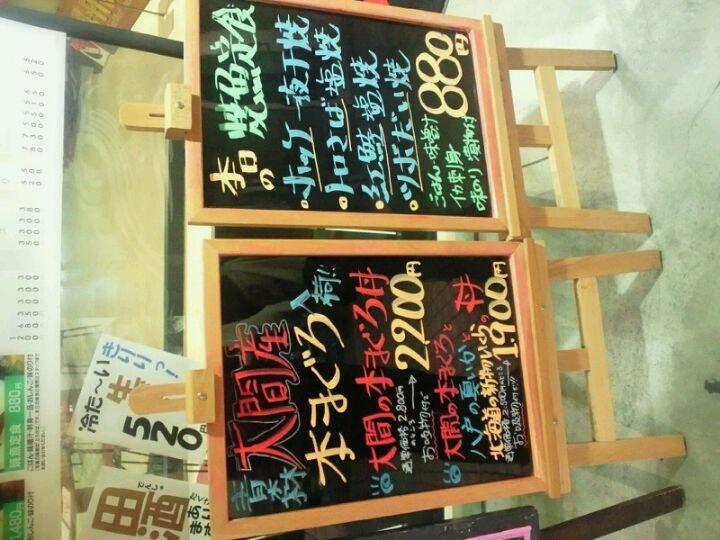 本日の 焼魚定食
ホッケ一夜干焼
トロさば塩焼
紅鮭塩焼
ツボだい焼
880円
ごはん・味噌汁
イカ刺身
味のり・漬物付
青森 大間産
本まぐろ入荷!!
大間の本まぐろ丼
2,200円
通常価格2,800円のところ
お吸物付で
大間の本まぐろと
八戸の真いかと
北海道の新物いくらの
丼
1,900円
お吸物付で!!
きりりっ!
冷た〜い
生
520円
田酒
でんしゅ
焼魚定食 880円
1,480円